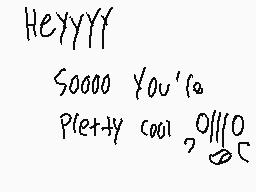 Heyyyy
Soooo You're
Pretty cool,